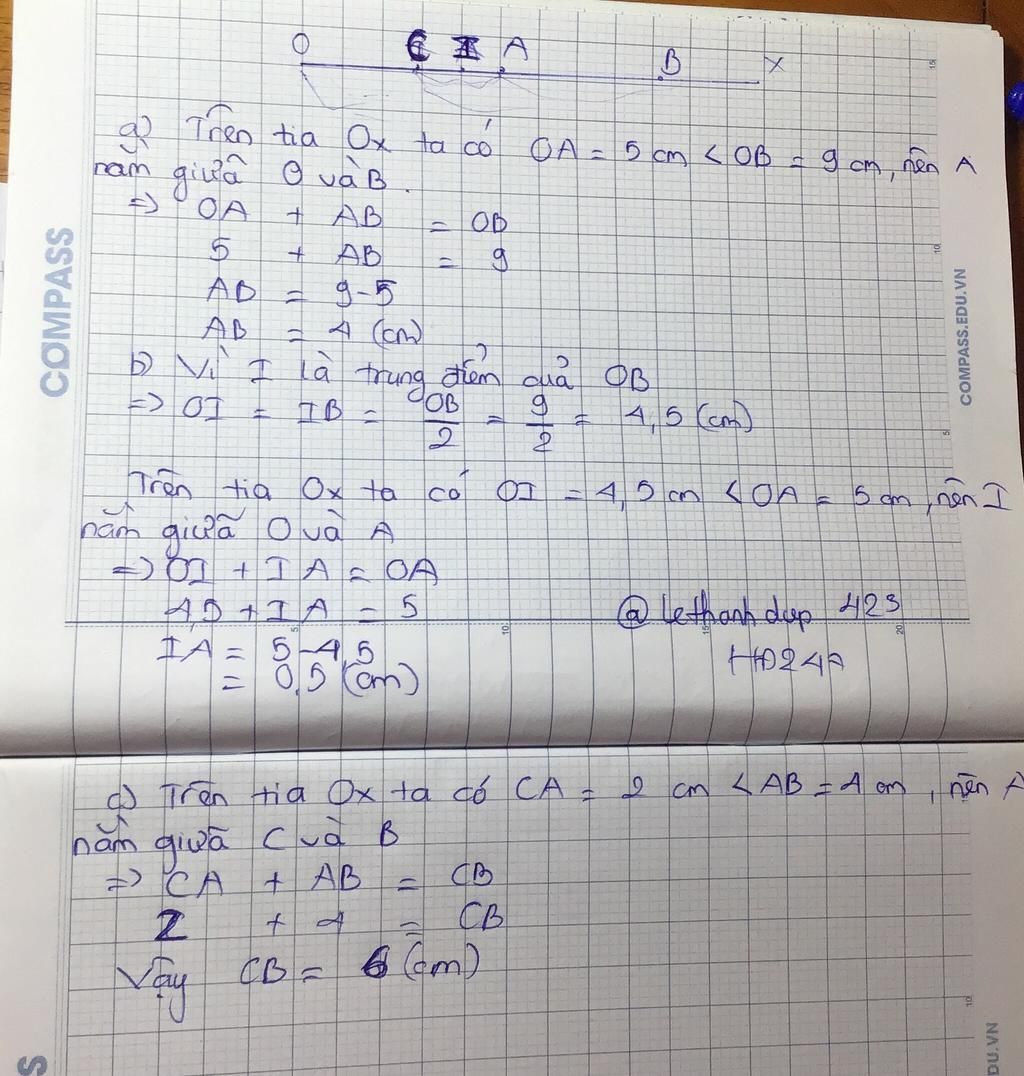 O C I A B x
a) Trên tia Ox ta có OA = 5 cm < OB = 9 cm, nên A
nằm giữa O và B.
=> OA + AB = OB
5 + AB = 9
AB = 9-5
AB = 4 (cm)
b) Vì I là trung điểm của OB
=> OI = IB = OB/2 = 9/2 = 4,5 (cm)
Trên tia Ox ta có OI = 4,5 cm < OA = 5 cm, nên I
nằm giữa O và A
=> OI + IA = OA
4,5 + IA = 5
@ lethanh dup 423
IA = 5-4,5
HD24A
= 0,5 (cm)
c) Trên tia Ox ta có CA = 2 cm < AB = 4 cm, nên A
nằm giữa C và B
=> CA + AB = CB
2 + 4 = CB
Vậy CB = 6 (cm)
COMPASS
COMPASS.EDU.VN
15
10
5
5
10
15
20
10
S
DU.VN